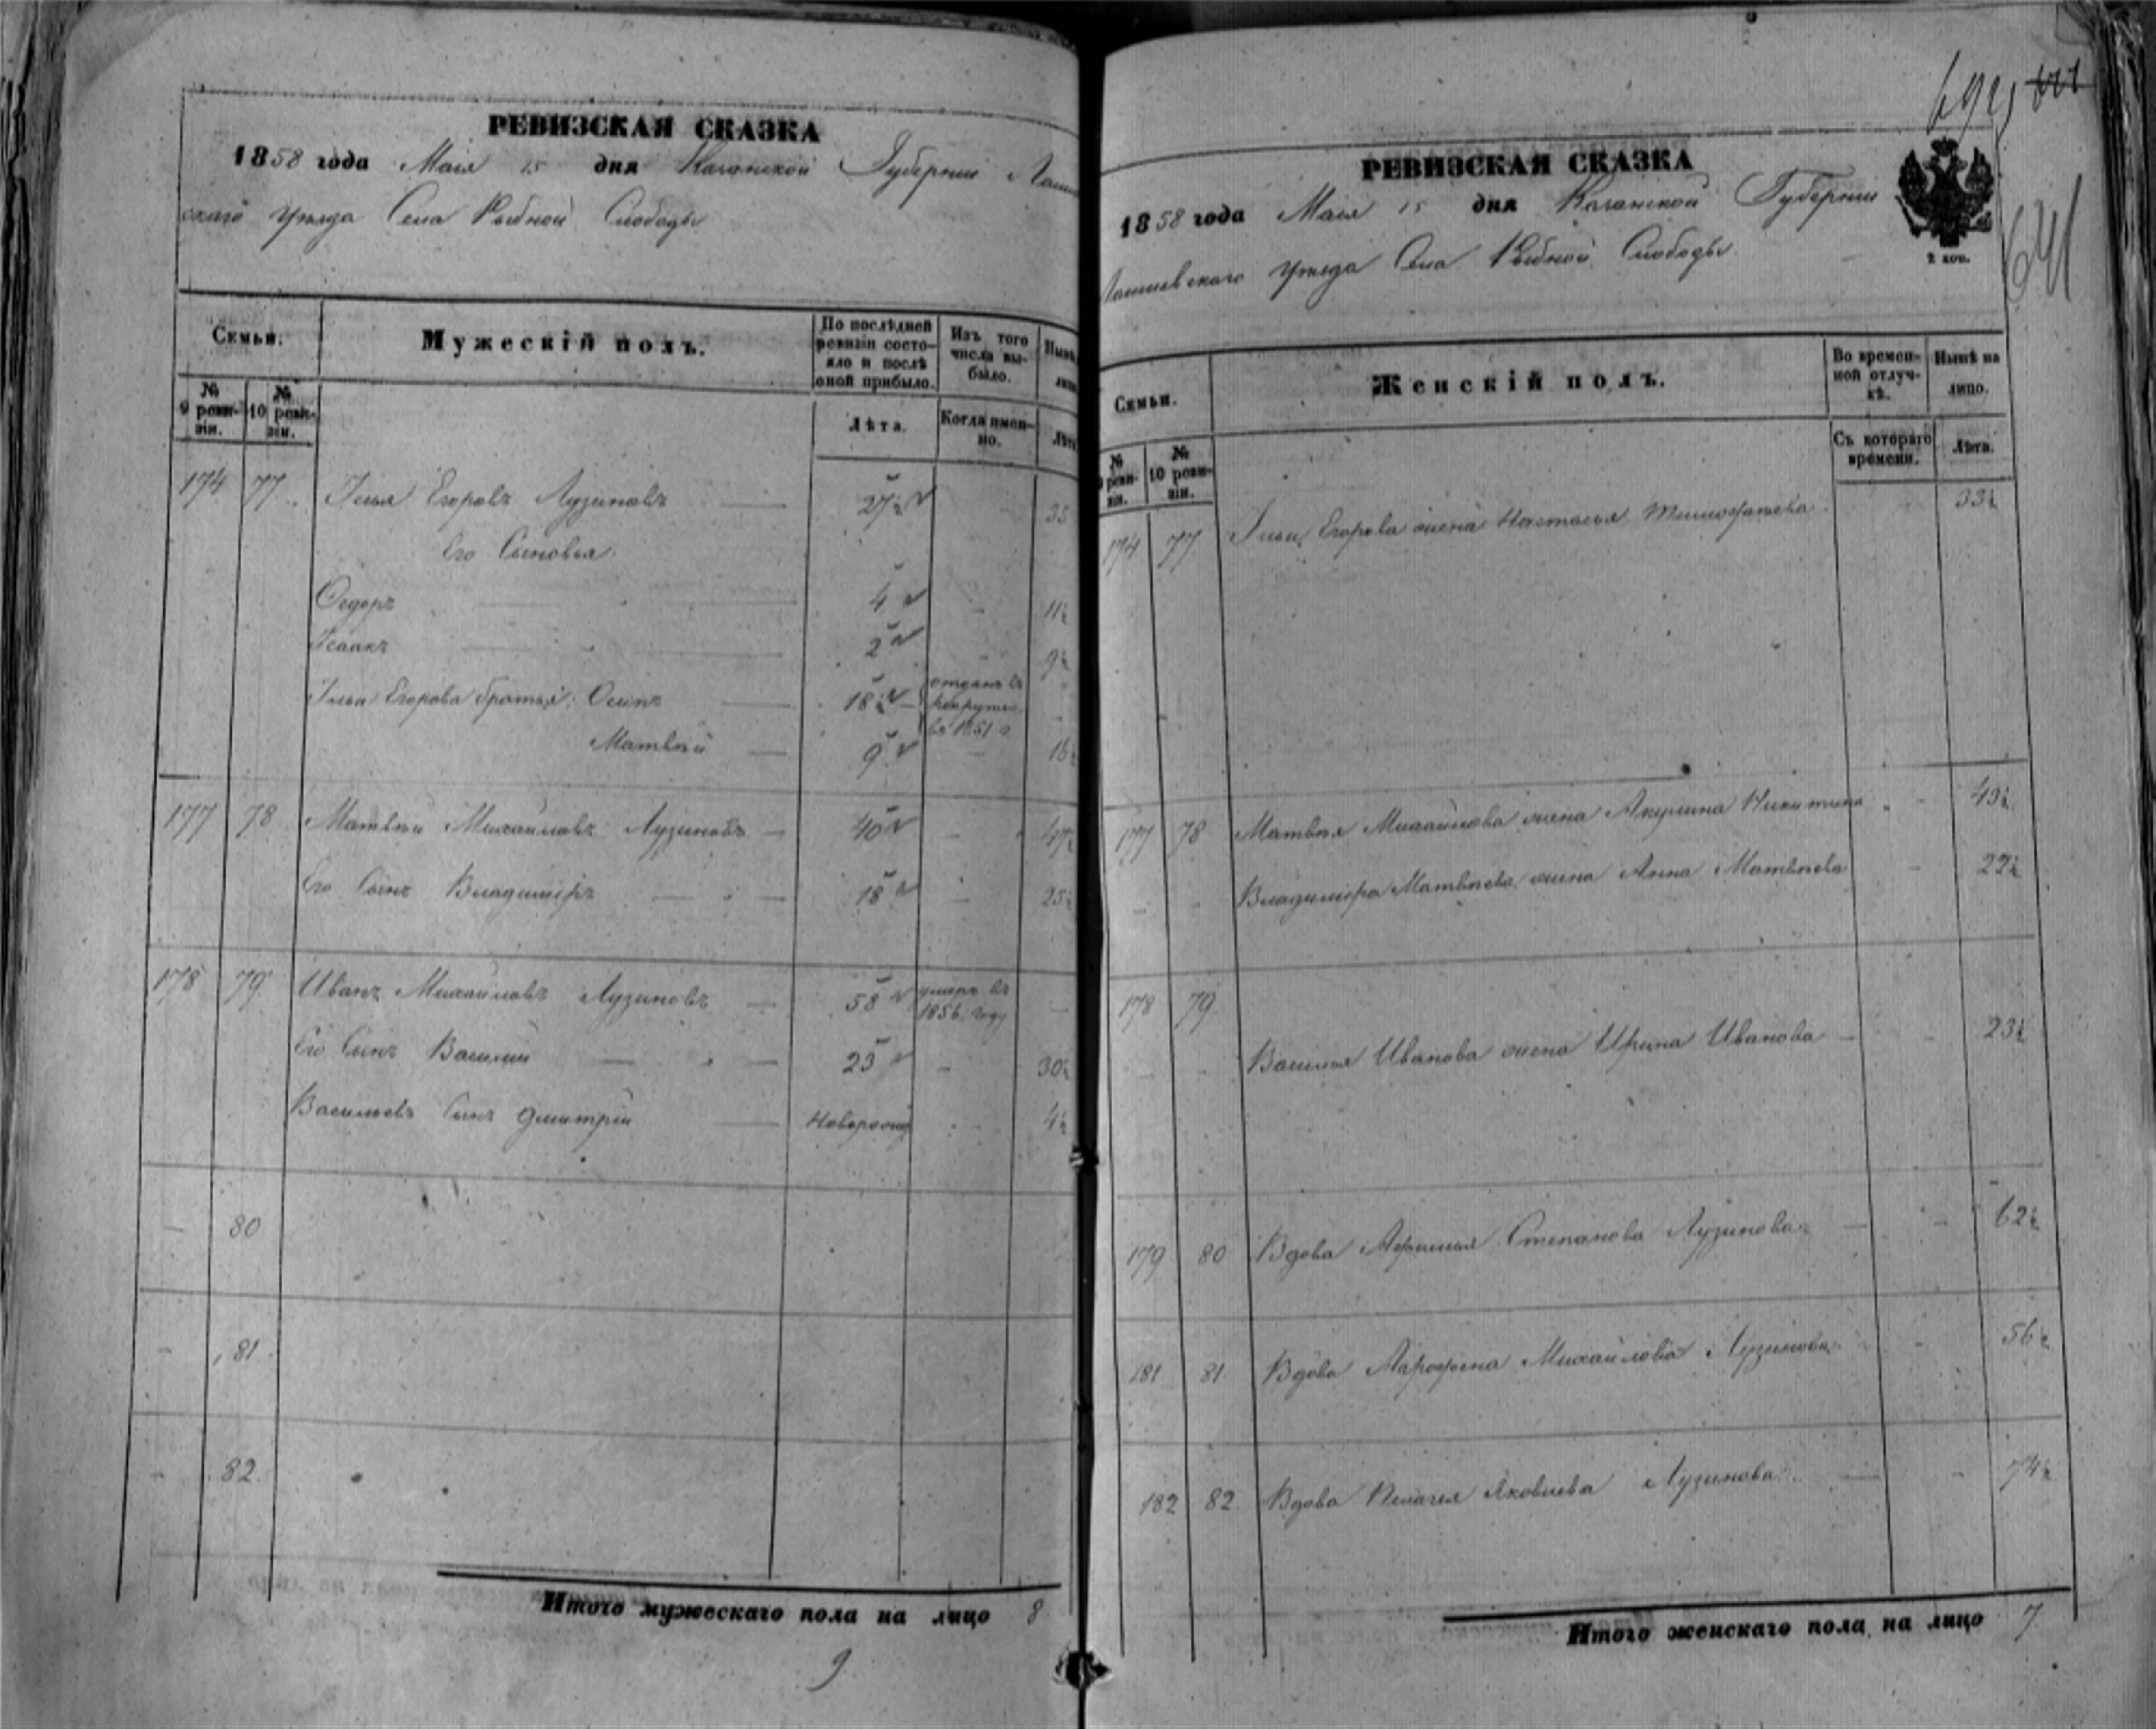 РЕВИЗСКАЯ СКАЗКА
1858 года Маія 15 дня Казанской Губерніи Лаише
скаго Уѣзда Села Рыбной Слободы
Семьи.
Мужескій полъ.
По послѣдней ревизіи состояло и послѣ оной прибыло.
Изъ того числа выбыло.
№ 9 ревизіи.
№ 10 ревизіи.
Лѣта.
Когда именно.
Лѣта
174 77 Илья Егоровъ Лузиновъ 27½ 35
Его Сыновья:
Ѳедоръ 4 11½
Исаакъ 2 9½
Ильи Егорова братья: Осипъ 18½ отданъ въ рекруты въ 1851 г
Матвѣй 9 16½
177 78 Матвѣй Михайловъ Лузиновъ 40 47½
Его Сынъ Владиміръ 18 25½
178 79 Иванъ Михайловъ Лузиновъ 58 умеръ въ 1856 году
Его Сынъ Василій 23 30½
Васильевъ Сынъ Дмитрій Новорожд 4½
80
81
82
Итого мужескаго пола на лицо 8
9
641
РЕВИЗСКАЯ СКАЗКА
1858 года Маія 15 дня Казанской Губерніи
Лаишевскаго Уѣзда Села Рыбной Слободы
2 коп.
Семьи.
Женскій полъ.
Во временной отлучкѣ.
Нынѣ на лицо.
№ 9 ревизіи.
№ 10 ревизіи.
Съ котораго времени.
Лѣта.
174 77 Ильи Егорова жена Настасья Тимофѣева 33½
177 78 Матвѣя Михайлова жена Акулина Никитина 43½
Владиміра Матвѣева жена Анна Матвѣева 22½
178 79
Василья Иванова жена Ирина Иванова 23½
179 80 Вдова Афимья Степанова Лузинова 62½
181 81 Вдова Михайлова Лузинова 56½
182 82 Вдова Пелагея Яковлева Лузинова 74½
Итого женскаго пола на лицо 7